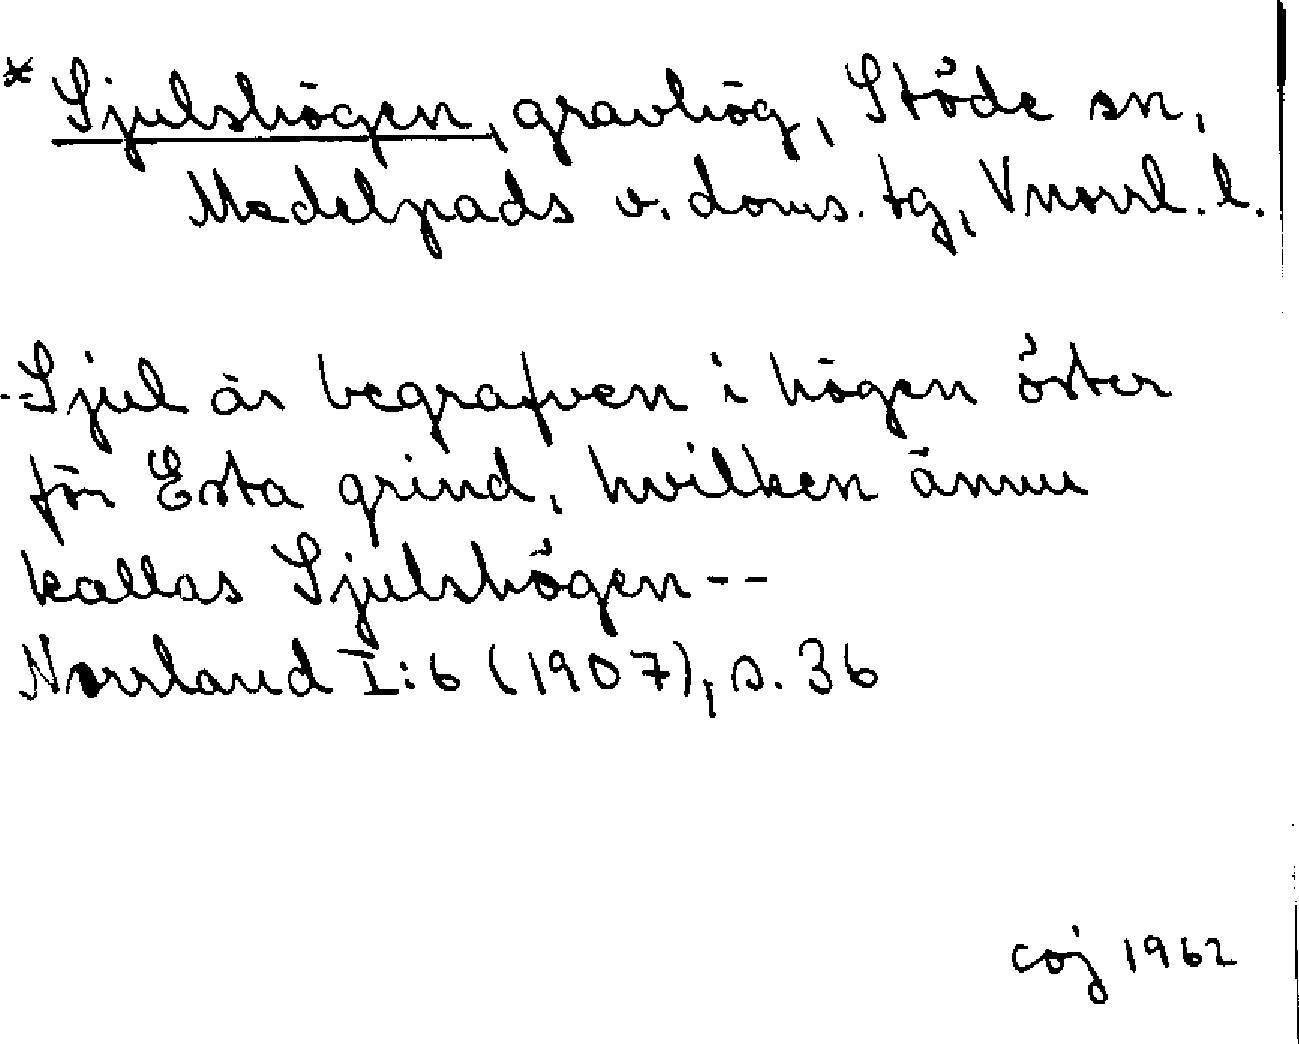 * Sjulshögen, gravhög, Stöde sn,
Medelpads v. doms. tg, Vnorrl. l.
--Sjul är begrafven i högen öster
för Ersta grind, hvilken ännu
kallas Sjulshögen--
Norrland I:6 (1907), s. 36
coj 1962